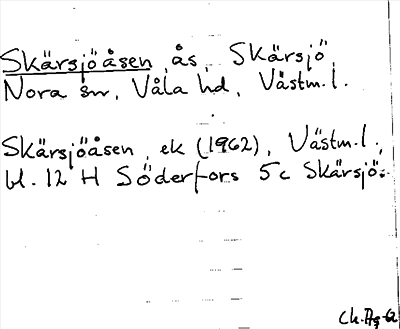 Skärsjöåsen, ås, Skärsjö,
Nora sn, Våla hd, Västm.l.
Skärsjöåsen, ek (1962), Västm.l.,
bl. 12 H Söderfors 5c Skärsjö.